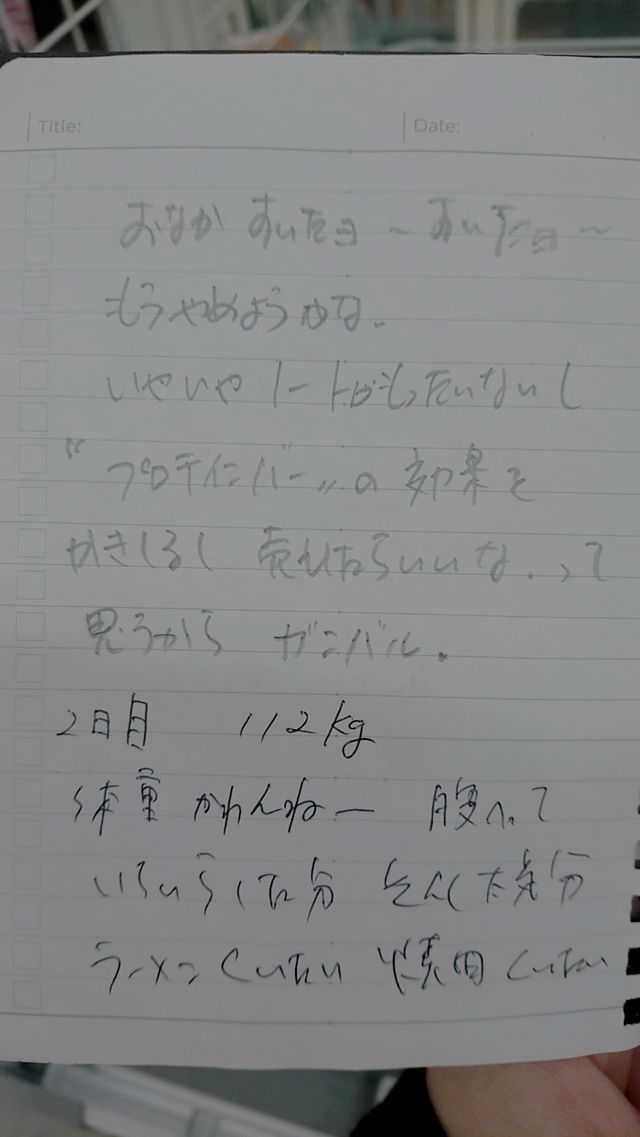 Title: Date:
おなか すいたヨ～ すいたヨ～
もうやめようかな.
いやいや ノートがもったいないし
"プロテインバー"の 効果を
かきしるし 売れたらいいな.って
思うから ガンバル.
2日目 112kg
体重 かわんねー 腹へって
いらいらした分 そんした気分
ラーメンくいたい 焼肉くいたい